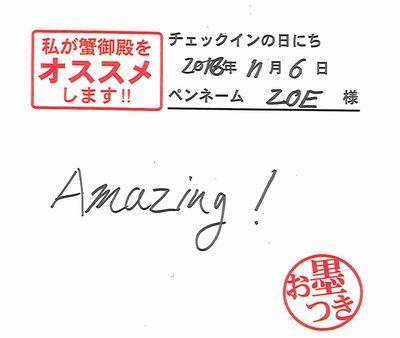 私が蟹御殿を
オススメ
します!!
チェックインの日にち
2018年 11月 6日
ペンネーム ZOE 様
Amazing!
お墨つき